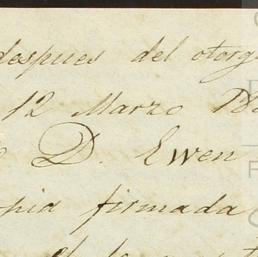 despues del otorg
12 Marzo 18
D. Ewen
pia firmada